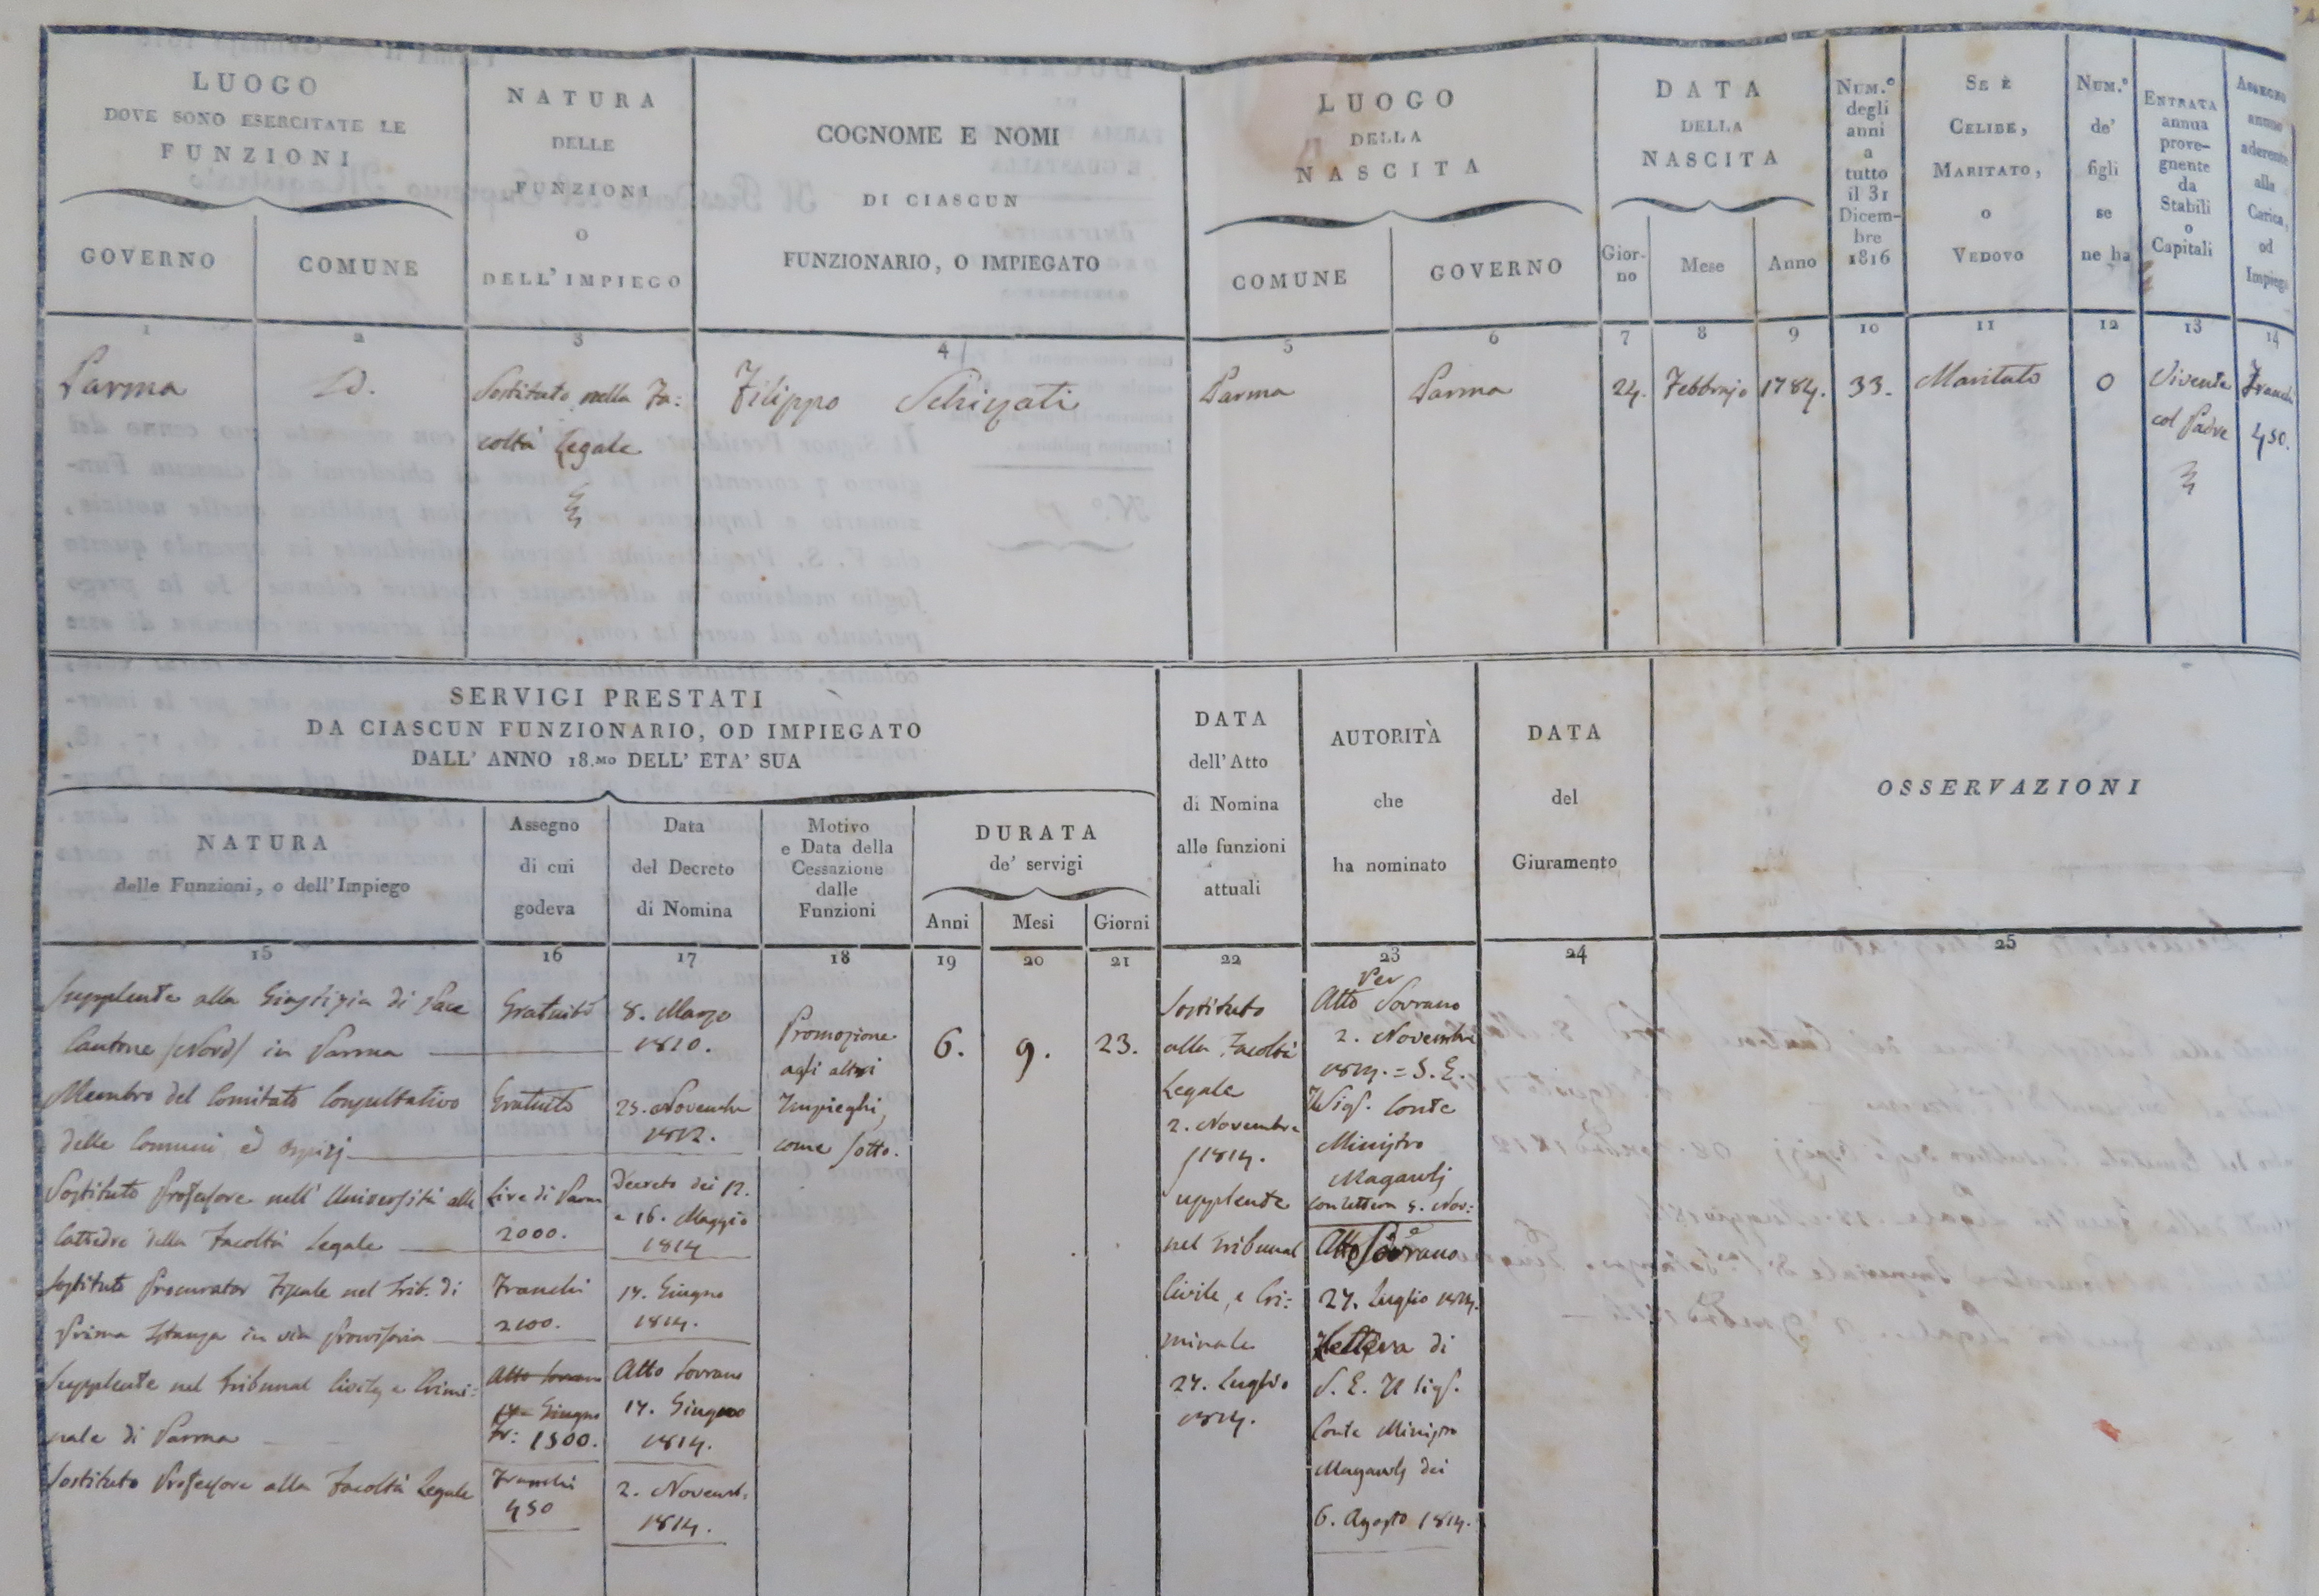 LUOGO
DOVE SONO ESERCITATE LE
FUNZIONI
GOVERNO
COMUNE
NATURA
DELLE
FUNZIONI
O
DELL' IMPIEGO
COGNOME E NOMI
DI CIASCUN
FUNZIONARIO, O IMPIEGATO
LUOGO
DELLA
NASCITA
COMUNE
GOVERNO
DATA
DELLA
NASCITA
Gior-
no
Mese
Anno
NUM.º
degli
anni
a
tutto
il 31
Dicem-
bre
1816
SE È
CELIBE,
MARITATO,
O
VEDOVO
NUM.º
de'
figli
se
ne ha
ENTRATA
annua
prove-
gnente
da
Stabili
o
Capitali
ASSEGNO
annuo
aderente
alla
Carica,
od
Impiego
1
2
3
4
5
6
7
8
9
10
11
12
13
14
Parma
Id.
Sostituto nella Fa:
coltà Legale
Filippo Schizzati
Parma
Parma
24.
Febbrajo
1784.
33.
Maritato
0
Vivente
col Padre
Franchi
450.
SERVIGI PRESTATI
DA CIASCUN FUNZIONARIO, OD IMPIEGATO
DALL' ANNO 18.MO DELL' ETA' SUA
NATURA
delle Funzioni, o dell'Impiego
Assegno
di cui
godeva
Data
del Decreto
di Nomina
Motivo
e Data della
Cessazione
dalle
Funzioni
DURATA
de' servigi
Anni
Mesi
Giorni
DATA
dell'Atto
di Nomina
alle funzioni
attuali
AUTORITÀ
che
ha nominato
DATA
del
Giuramento
OSSERVAZIONI
15
16
17
18
19
20
21
22
23
24
25
Supplente alla Giustizia di Pace
Cantone (Nord) in Parma
Gratuito
8. Marzo
1810.
Membro del Comitato Consultativo
delle Comuni ed Ospizj
Gratuito
25. Novembre
1812.
Sostituto Professore nell' Università alle
Cattedre della Facoltà Legale
Lire di Parma
2000.
Decreto dei 12.
e 16. Maggio
1814
Sostituto Procurator Fiscale nel Trib. di
Prima Istanza in via Provvisoria
Franchi
2100.
14. Giugno
1814.
Supplente nel Tribunal Civile, e Crimi:
nale di Parma
Atto Sovrano
14. Giugno
Fr: 1500.
Atto Sovrano
14. Giugno
1814.
Sostituto Professore alla Facoltà Legale
Franchi
450
2. Novemb.
1814.
Promozione
agli altri
Impieghi,
come sotto.
6.
9.
23.
Sostituto
alla Facoltà
Legale
2. Novembre
1814.
Supplente
nel Tribunal
Civile, e Cri:
minale
27. Luglio
1814.
Per
Atto Sovrano
2. Novembre
1814. = S. E.
Il Sigr. Conte
Ministro
Magawly
con lettera 5. Nov:e
Atto Sovrano
27. Luglio 1814.
Lettera di
S. E. Il Sigr.
Conte Ministro
Magawly dei
6. Agosto 1814.